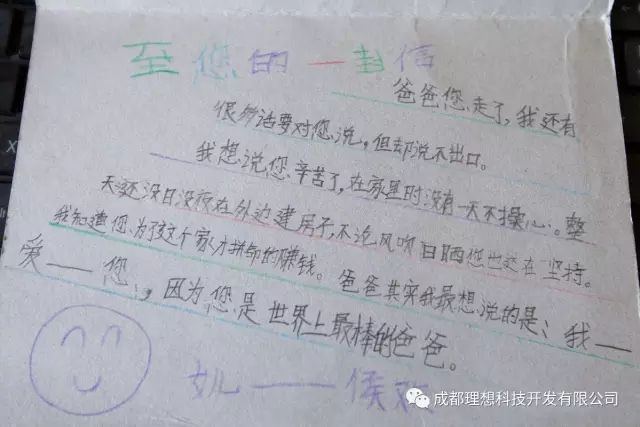 至您的一封信
爸爸您走了，我还有
很多话要对您说，但却说不出口。
我想说您辛苦了，在家里时没有一天不操心。整
天还没日没夜在外边建房子，不论风吹日晒您也还在坚持。
我知道您为了这个家才拼命的赚钱。爸爸其实我最想说的是：我——
爱——您，因为您是世界上最棒的爸爸。
女儿——侯欢
成都理想科技开发有限公司